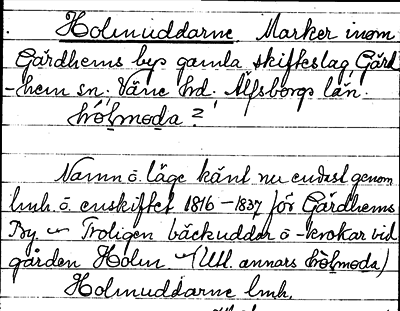 Holmuddarne. Marker inom
Gärdhems bys gamla skifteslag Gärd
-hem sn; Väne hd. Älfsborgs län.
hö̀ḷmoda?
Namn o. läge känt nu endast genom
lmh. o. enskiftet 1816-1837 för Gärdhems
By — Troligen bäckuddar o -krokar vid
gården Holm — (Utl. annars hö̀ḷmoda)
Holmuddarne lmh.